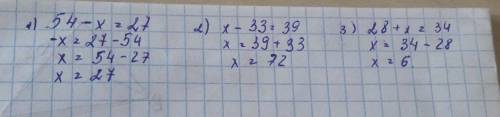 1) 54 - x = 27
-x = 27 - 54
x = 54 - 27
x = 27
2) x - 33 = 39
x = 39 + 33
x = 72
3) 28 + x = 34
x = 34 - 28
x = 6